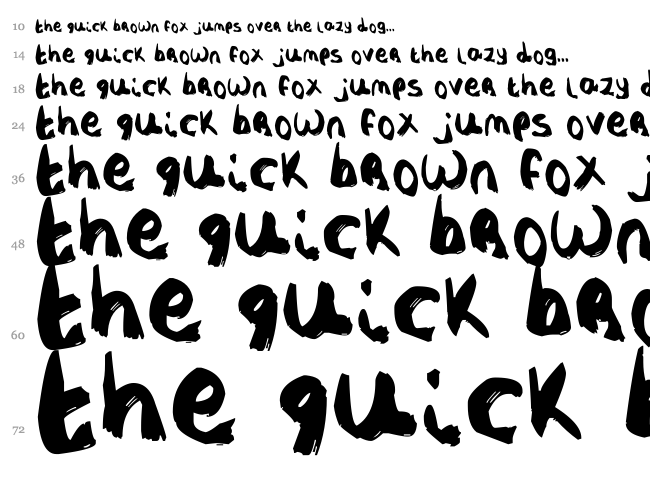 10 the quick bRown fox jumps oveR the lazy dog...
14 the quick bRown fox jumps oveR the lazy dog...
18 the quick bRown fox jumps oveR the lazy d
24 the quick bRown fox jumps oveR
36 the quick bRown fox j
48 the quick bRown
60 the quick bRo
72 the quick b